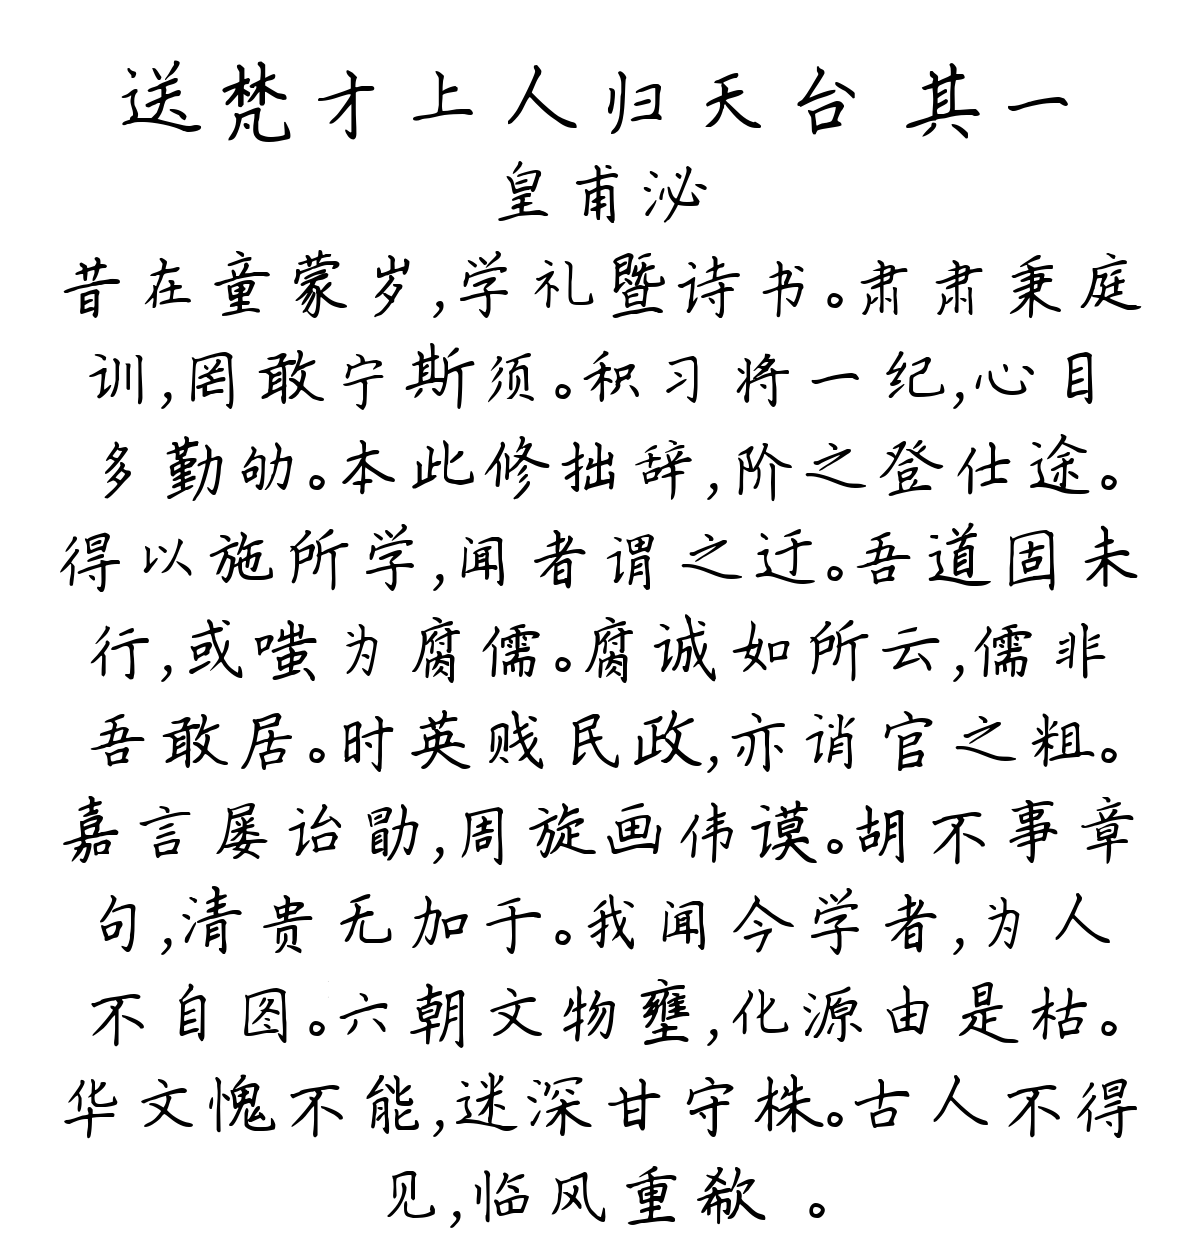 送梵才上人归天台 其一
皇甫泌
昔在童蒙岁,学礼暨诗书。肃肃秉庭
训,罔敢宁斯须。积习将一纪,心目
多勤劬。本此修拙辞,阶之登仕途。
得以施所学,闻者谓之迂。吾道固未
行,或嗤为腐儒。腐诚如所云,儒非
吾敢居。时英贱民政,亦诮官之粗。
嘉言屡诒勖,周旋画伟谟。胡不事章
句,清贵无加于。我闻今学者,为人
不自图。六朝文物壅,化源由是枯。
华文愧不能,迷深甘守株。古人不得
见,临风重欷 。